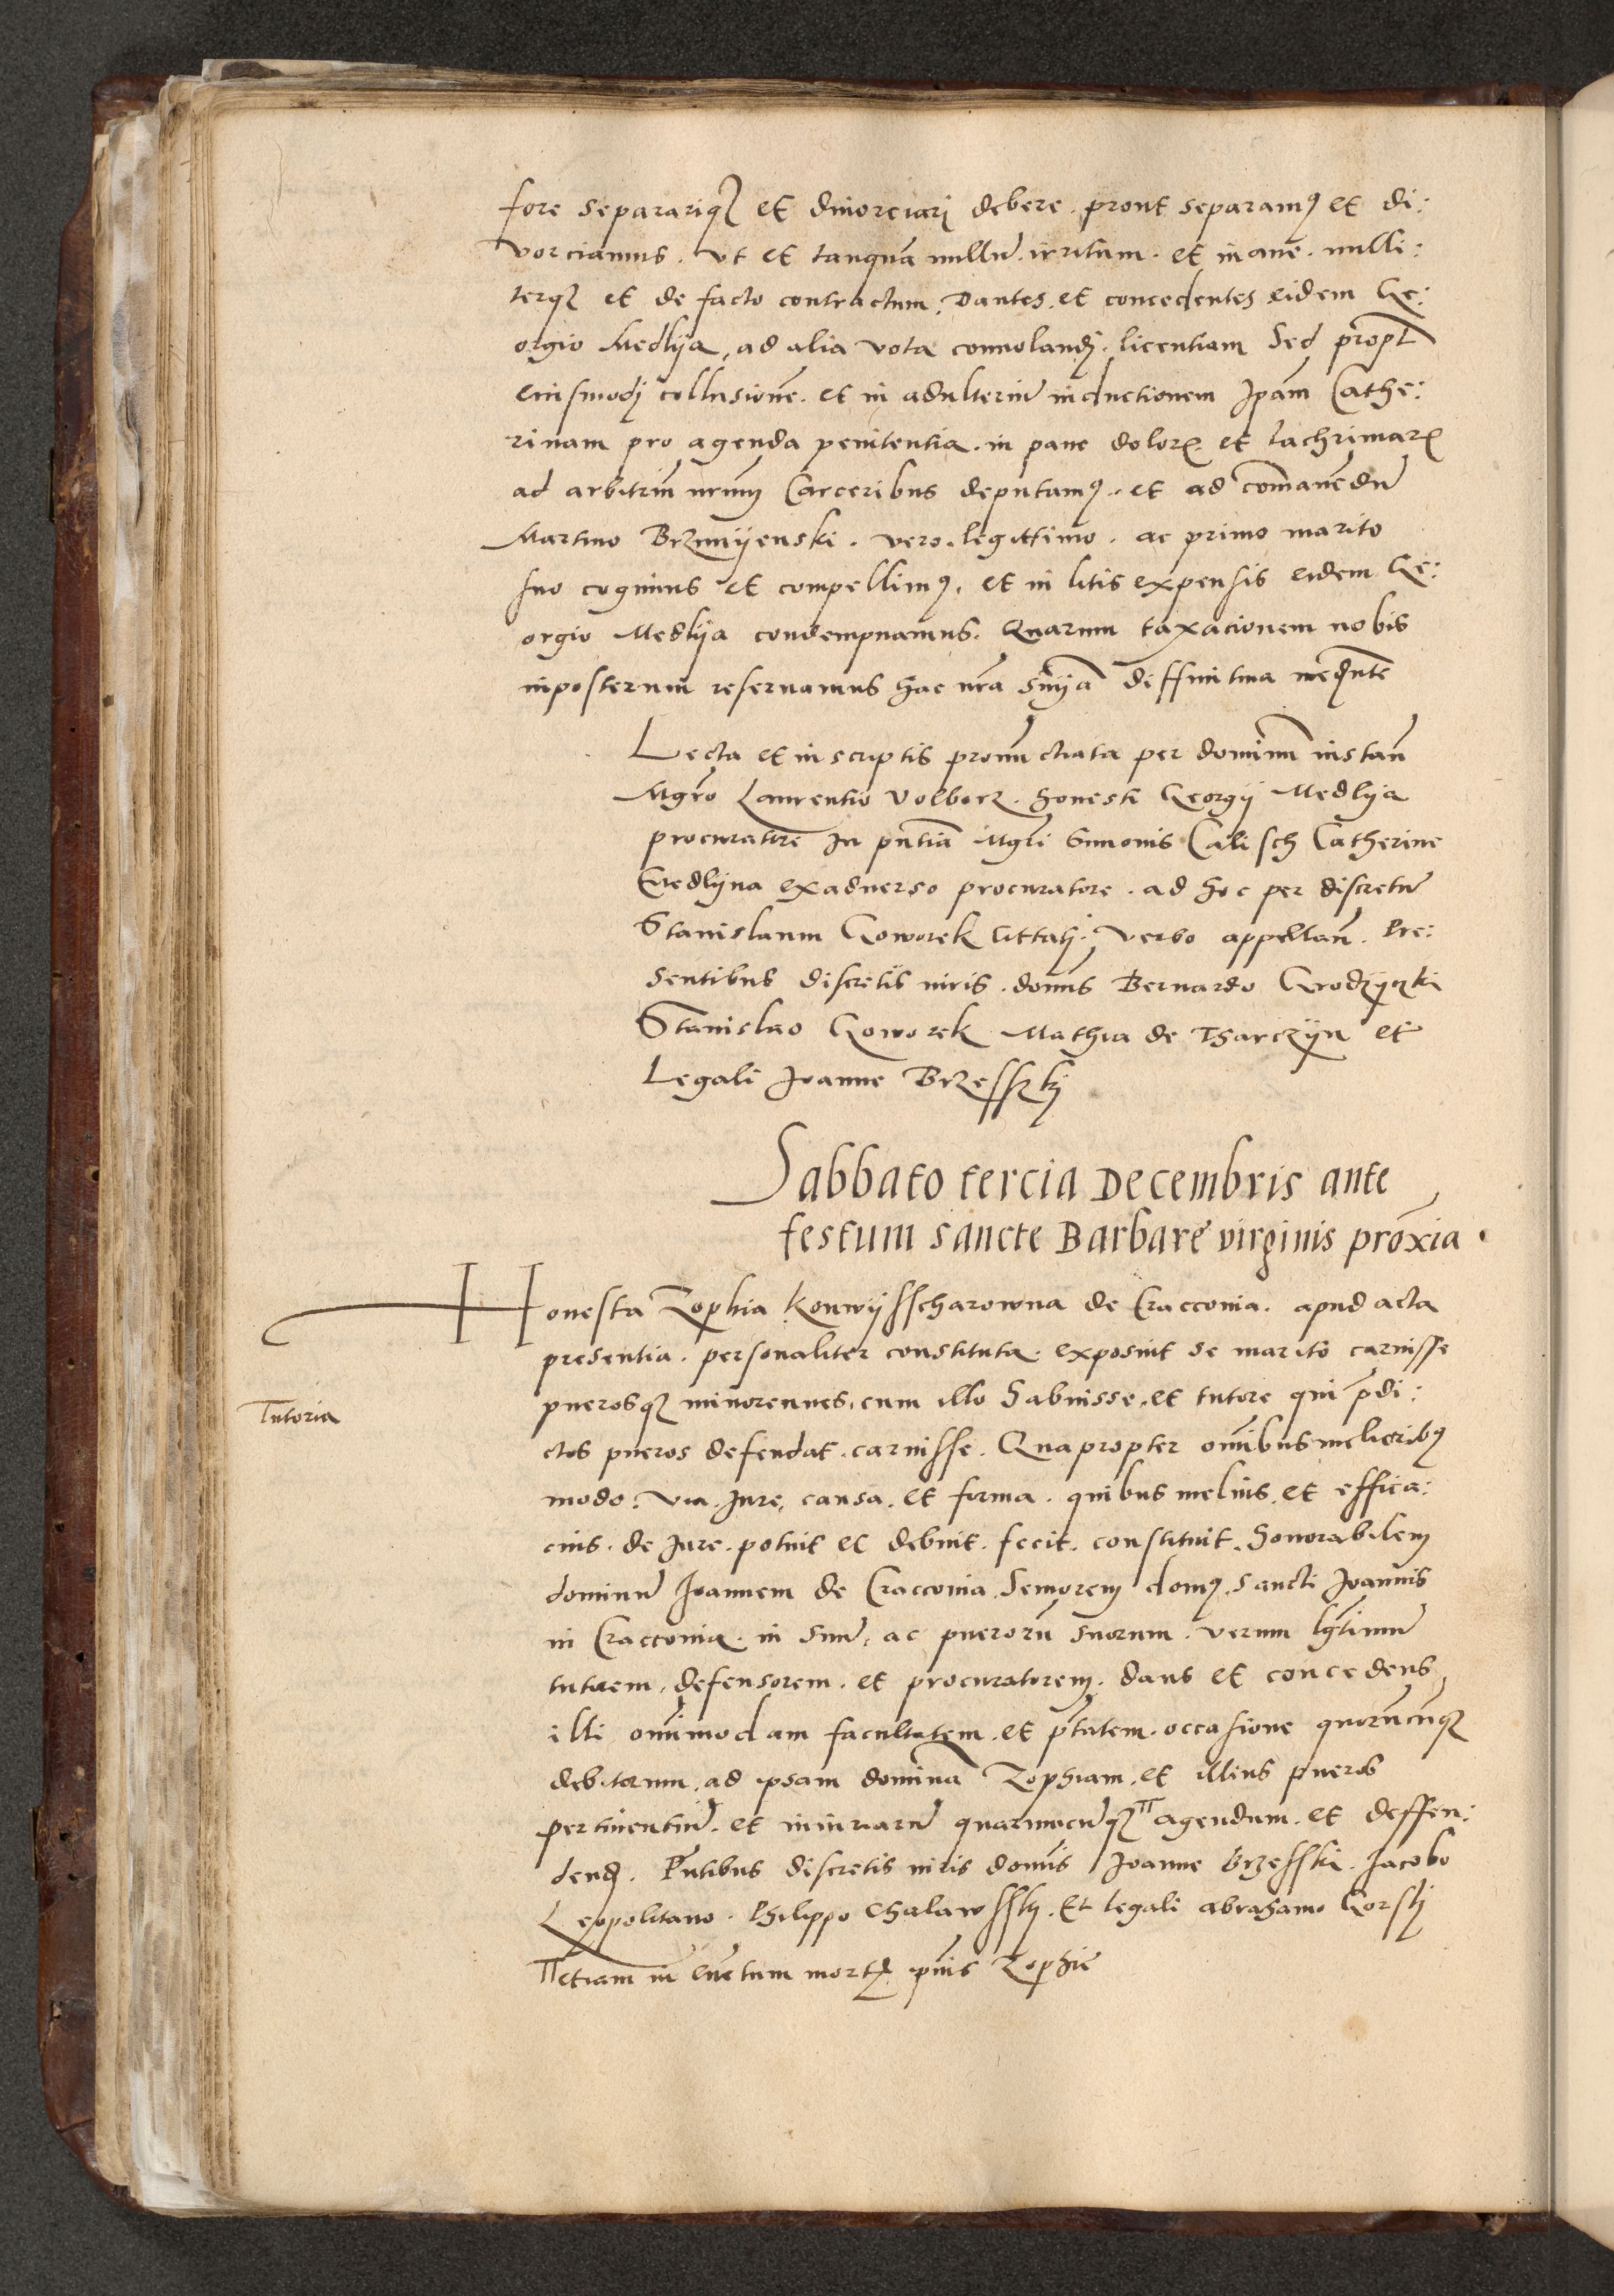 fore separariq₃ et diuorciari debere. prout separamꝰ et di:
vorciamus. vt et tanquā nullū. irritum. et inane. nulli:
terq₃ et de facto contractum. Dantes. et concedentes eidem Ge:
orgio Medlÿa, ad alia vota conuolandj. licentiam Sed propt
eiusmodj collusionē. et in adulteriū inductionem Ipām Cathe:
rinam pro agenda penitentia. in pane dolorꝝ. et lachrimarꝝ
ad arbitriū nrum Carceribus deputamꝰ. et ad cōmanēdū
Martino Brzmÿenski. vero. legittimo. ac primo marito
suo cogimus et compellimꝰ. et in litis expensis eidem Ge:
orgio Medlÿa condempnamus. Quarum taxacionem nobis
inposterum reseruamus hac nrā snÿā diffinitiua mediante
Lecta et in scriptis pronunctiata per dominū instan̄
Mgrō Laurentio Volborz. honesti Georgÿ Medlÿa
procuratore In pntiā Mgri Simonis Calisch Catherine
exaduerso procuratore. ad hoc per discretū
Stanislaum Goworek Cittatj. verbo appellan̄. Pre:
sentibus discretis viris. domis Bernardo Grodzÿczki
Stanislao Goworek Mathia de Tharczÿn et
Legali Joanne Brzesszkj
Sabbato tercia Decembris ante
festum sancte Barbare virginis proxīa.
Honesta Zophia Konwÿsscharowna de Cracconia. apud acta
presentia. personaliter constituta. exposuit se marito caruisse
puerosq₃ minorennes. cum illo habuisse. et tutore qui p̄di:
Tutoria
ctos pueros defendat. caruisse. Quapropter om̄ibus melioribꝰ
modo. via. Jure, causa. et forma. quibus melius. et effica:
cius. de Jure. potuit et debuit. fecit. constituit. honorabilem
dominū Joannem de Cracconia Seniorem domꝰ. sancti Joannis
in Cracconia. in suū, ac puerorū suorum. verum lgtimū
tutorem, defensorem. et procuratorem. dans et concedens
illi om̄imodam facultatem. et ptātem. occasione quorūcūq₃
debitorum. ad ipsam dominā Zophiam. et illius pueros
pertinentiū. et iniuriarū quarumcūq₃ ᴨ agendum. et deffen:
dendj. Pn̄tibus discretis viris domīs Joanne Brzesski. Jacobo
Leopolitano. Philippo Chalawsskj. Et legali abrahamo Gorskj
ᴨ etiam in euētum mortis ipsius Zophie